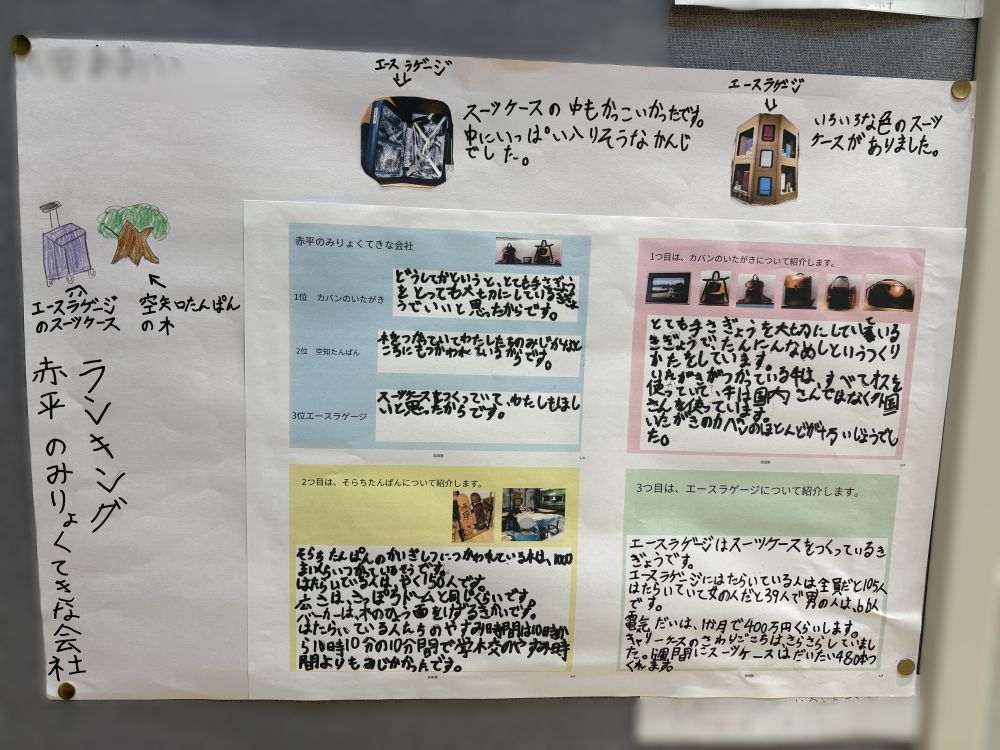 エースラゲージ
スーツケースの中もかっこいかったです。
中にいっぱい入りそうなかんじ
でした。
エースラゲージ
いろいろな色のスーツ
ケースがありました。
エースラゲージ
のスーツケース
空知たんぱん
の木
ランキング
赤平のみりょくてきな会社
赤平のみりょくてきな会社
1位 カバンのいたがき
どうしてかというと、とても手さぎょう
をとっても大切にしている
でいいと思ったからです。
2位 空知たんぱん
木をつかっていてわたしたちのみじかな
ころにもつかわれているからです。
3位エースラゲージ
スーツケースをつくっていて、わたしもほし
いと思ったからです。
1つ目は、カバンのいたがきについて紹介します。
とても手さぎょうを大切にしている
きぎょうでたんにんなめしというつくり
かたをしています。
いたがきがつかっている牛は、すべてオスを
使っていて、牛は国内さんではなく外国
さんを使っています。
いたがきのカバンのほとんどが
た。
2つ目は、そらちたんぱんについて紹介します。
そらちたんぱんの
まいくらいつかっているそうです。
はたらいている人は、やく150人です。
広さは、さっぽろドームと同じくらいです。
バーカーは、木のひょう面をけずるきかいです。
はたらいている人たちのやすみ時間は10時か
ら10時10分の10分間で学校のやすみ時
間よりもみじかかったです。
3つ目は、エースラゲージについて紹介します。
エースラゲージはスーツケースをつくっているき
ぎょうです。
エースラゲージにはたらいている人は全員だと105人
はたらいていて女の人だと39人で男の人は、66人
です。
電気だいは、1か月で400万円くらいします。
キャリーケースのさわりごこちは、さらさらしていまし
た。1週間にスーツケースはだいたい480本つ
くれます。